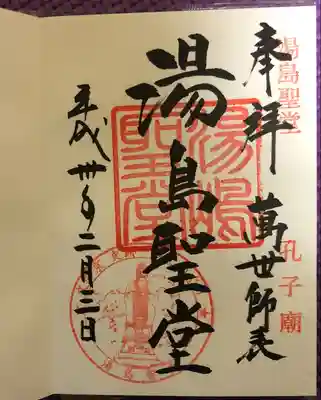 湯島聖堂 孔子廟
奉拝 萬世師表
湯島聖堂
湯島聖堂
平成卅年二月三日